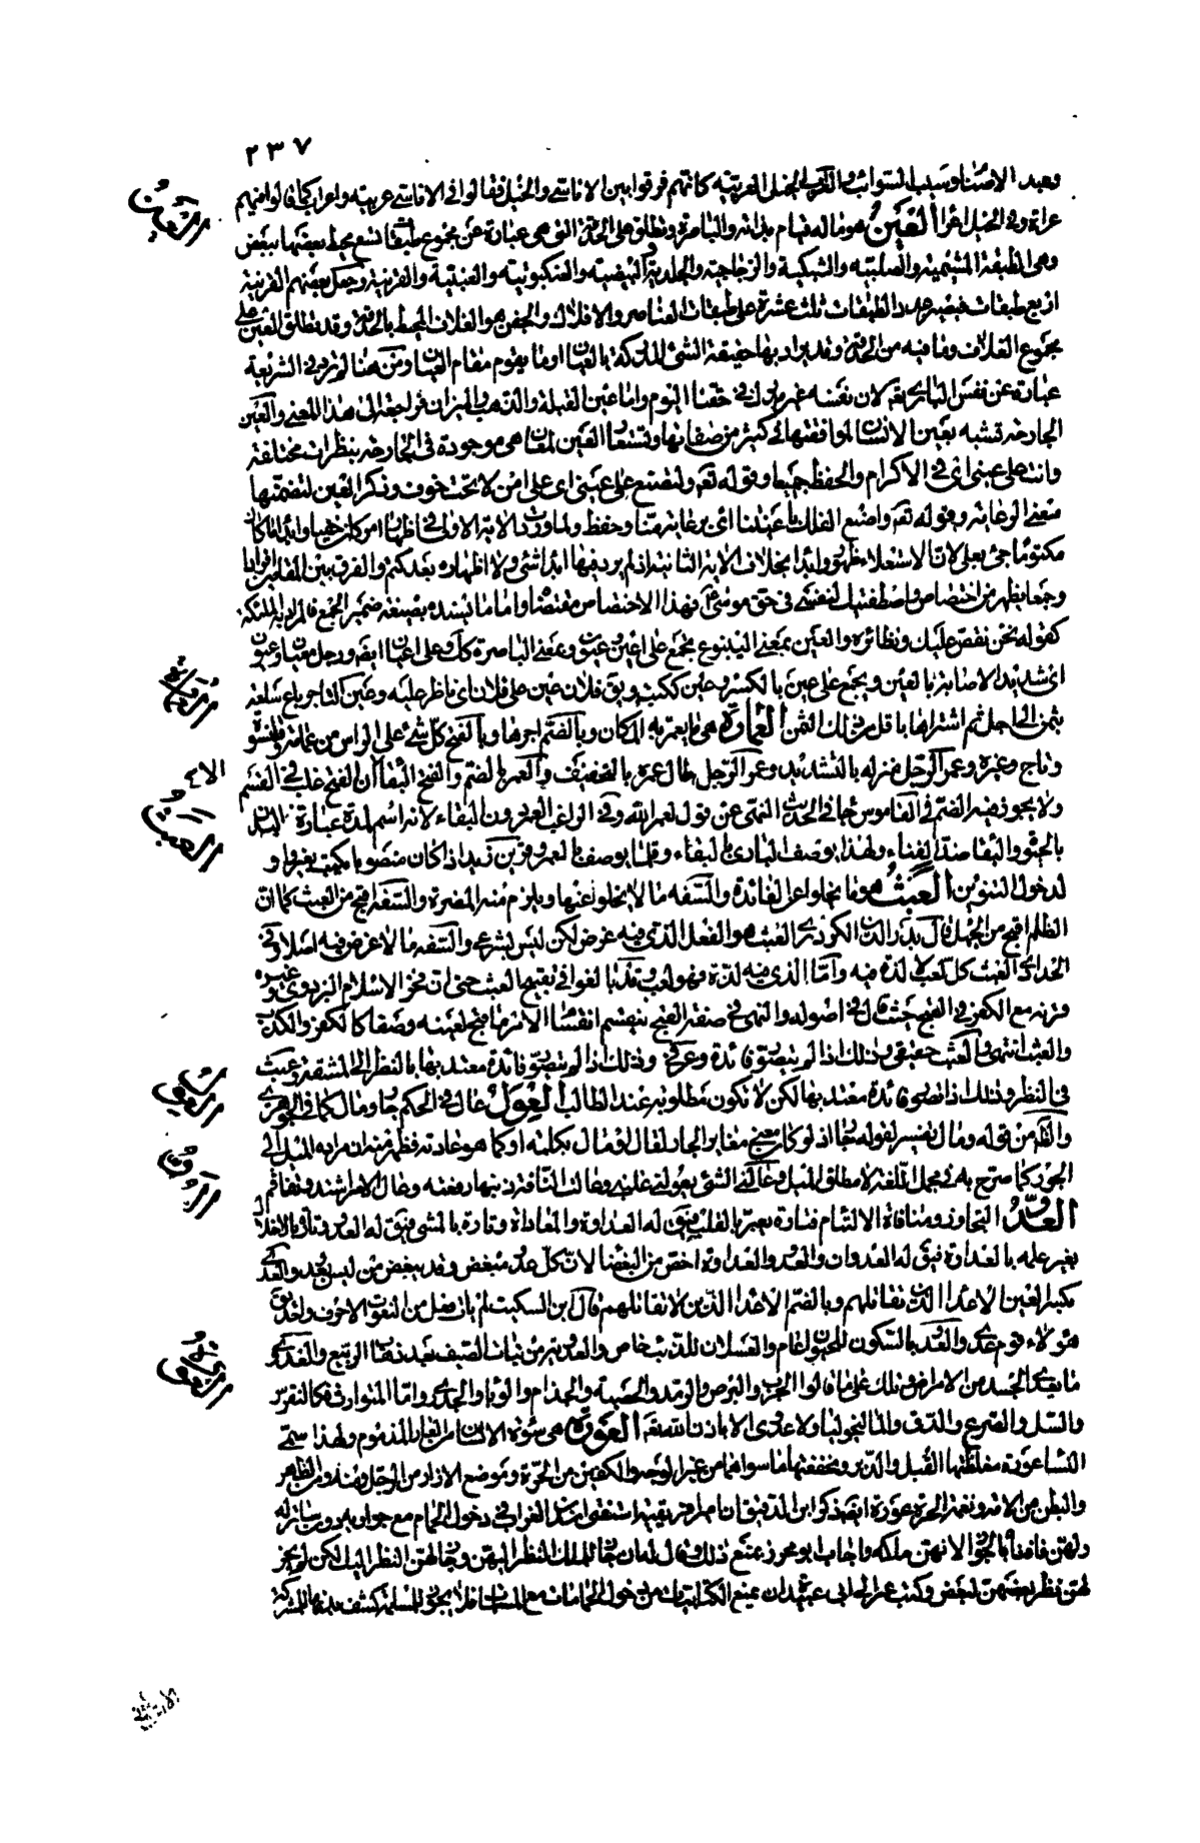 ٢٣٧
وعبد الاصنام وسبب السوائب والعراب الخيل العربية كانهم فرقوا بين الاناسي والخيل فقالوا في الاناسي عربية واعراب كما قالوا فيهم
عراة وفي الخيل اعراء العَين هو ما له قيام بذاته والباصرة وتطلق على الحدقة التي هي عبارة عن مجموع طبقات تسع محيط بعضها ببعض
وهي الطبقة المشيمية والصلبية والشبكية والزجاجية والجلدية والبيضية والعنكبوتية والعنبية والقرنية وجعل بعضهم القرنية
اربع طبقات فيصير عدد الطبقات ثلث عشرة على طبقات العناصر والافلاك والجفن هو الغلاف المحيط بالحدقة وقد تطلق العين على
مجموع الغلاف وما فيه من الحدقة وقد يراد بها حقيقة الشئ المدركة بالعيان او ما يقوم مقام العيان ومن هنا لم يرد في الشريعة
عبارة عن نفس الباري تعالى لان نفسه غير مدرك في حقنا اليوم واما عين القبلة والذهب والميزان فراجعة الى هذا المعنى والعين
الجارحة تشبه بعين الانسان لموافقتها في كثير من صفاتها وتستعار العين لمعان هي موجودة في الجارحة بنظرات مختلفة
وانت على عيني اي في الاكرام والحفظ جميعا وقوله تعالى ولتصنع على عيني اي على امن لا تحت خوف وذكر العين لتضمنها
معنى الرعاية وقوله تعالى واصنع الفلك باعيننا اي برعاية منا وحفظ ولما وردت الاية الاولى في اظهار امر كان خفيا وابداء ما كان
مكتوما جئ بعلى لان الاستعلاء ظهور وابداء بخلاف الاية الثانية اذ لم يرد فيها ابداء شئ ولا اظهاره بعد كتم والفرق بين المقامين افرادا
وجمعا يظهر من اختصاص واصطنعتك لنفسي في حق موسى فهذا الاختصاص مقتضى واما ما يسنده بصيغة ضمير الجمع فالمراد به الملئكة
كقوله نحن نقص عليك ونظائره والعين بمعنى الينبوع يجمع على اعين وعيون وبمعنى الباصرة كذلك وعلى اعيان ايضا ورجل معيان وعيون
اي شديد الاصابة بالعين ويجمع على عين بالكسر وعين ككتب ويق فلان عين على فلان اي ناظر عليه وعين التاجر باع سلعته
بثمن الى اجل ثم اشتراها باقل من ذلك الثمن العمارة هي ما يعمر به المكان وبالضم اجرها وبالفتح كل شئ على الراس من عمامة وقلنسوة
وتاج وغيره وعمر الرجل منزله بالتشديد وعمر الرجل طال عمره بالتخفيف والعمر بالضم والفتح البقاء الا ان الفتح غلب في القسم
ولا يجوز فيه الضم في القاموس جاء في الحديث النهي عن قول لعمر الله وفي الراغب العمر دون البقاء لانه اسم لمدة عمارة البدن
بالحيوة والبقاء ضد الفناء ولهذا يوصف الباري بالبقاء وقلما يوصف بالعمر وعمر بن زيد اذا كان منصوبا يكتب بغير واو
لدخول التنوين العَبَثُ هو ما يخلو عن الفائدة والسفه ما لا يخلو عنها ويلزم منه المضرة والسفه اقبح من العبث كما ان
الظلم اقبح من الجهل قال بدر الدين الكردري العبث هو الفعل الذي فيه غرض لكن ليس بشرعي والسفه ما لا غرض فيه اصلا وفي
الحدادي العبث كل لعب لا لذة فيه واما الذي فيه لذة فهو لعب وقد بالغوا في تقبيح العبث حتى ان فخر الاسلام البزدوي وغيره
قرنه مع الكفر في القبح حيث قال في اصوله والنهي في صفة القبح ينقسم انقسام الامر ما قبح لعينه وضعا كالكفر والكذب
والعبث انتهى والعبث حقيقي وذلك اذا لم يتصور فائدة وعرفي وذلك اذا لم يتصور فائدة معتد بها بالنظر الى المشقة وعبث
في النظر وذلك اذا تصور فائدة معتد بها لكن لا تكون مطلوبة عند الطالب العَول عال في الحكم جار ومال كما في الجوهري
والظاهر من قوله ومال تفسير لقوله جار اذ لو كان معنى مغايرا لجار لقال او مال بكلمة او كما هو عادته فظهر منه ان مراده الميل الى
الجور كما صرح به في مجمل اللغة لا مطلق الميل وعالني الشئ يعولني غلبني وعالت الناقة ذنبها رفعته وعال الامر اشتد وتفاقم
العدوّ التجاوز ومنافاة الالتئام فتارة يعتبر بالقلب فيق له العداوة والمعاداة وتارة بالمشي فيق له العدو وتارة بالاخلال
يعبر عليه بالعداوة فيق له العدوان والعدو والعداوة اخص من البغضاء لان كل عدو مبغض وقد يبغض من ليس بعدو والعدى
بكسر العين الاعداء الذين تقاتلهم وبالضم الاعداء الذين لا تقاتلهم قال ابن السكيت لم يات فعل من النعوت الا حرف واحد يق
هؤلاء قوم عدى والعدو بالسكون للحيوان عام والعسلان للذئب خاص والعدوية من نبات الصيف بعد ذهاب الربيع والعدوى
ما يعدي الجسد من الامراض وذلك على ما قالوا الجرب والبرص والرمد والحصبة والجذام والوباء والجدري واما المتوارث فكالنقرس
والسل والصرع والدق والماليخوليا ولا عدوى الا باذن الله تعالى العَورة هي سوءة الانسان من العار المذموم ولهذا سمي
النساء عورة مغلظتها القبل والدبر ومخففتها ما سواهما من غير الوجه والكفين من الحرة وموضع الازار من الرجل ومنه ومن الظهر
والبطن من الامة ونغمة الحرة عورة ايضا ذكر ابن الدقيق ان امير افريقية استفتى اسد بن الفرات في دخول الحمام مع جواريه دون ساتر له
ولهن فافتاه بالجواز لانهن ملكه واجاب ابو محرز بمنع ذلك وقال له ان جاز للملك النظر اليهن وجاز لهن النظر اليك لكن لم يجز
لهن نظر بعضهن لبعض وكتب عمر الى ابي عبيدة ان يمنع الكتابيات من دخول الحمامات مع المسلمات فلا يجوز للمسلمة كشف بدنها للمشركة
العَين
العمارة
العبث
العول
العدو
العورة